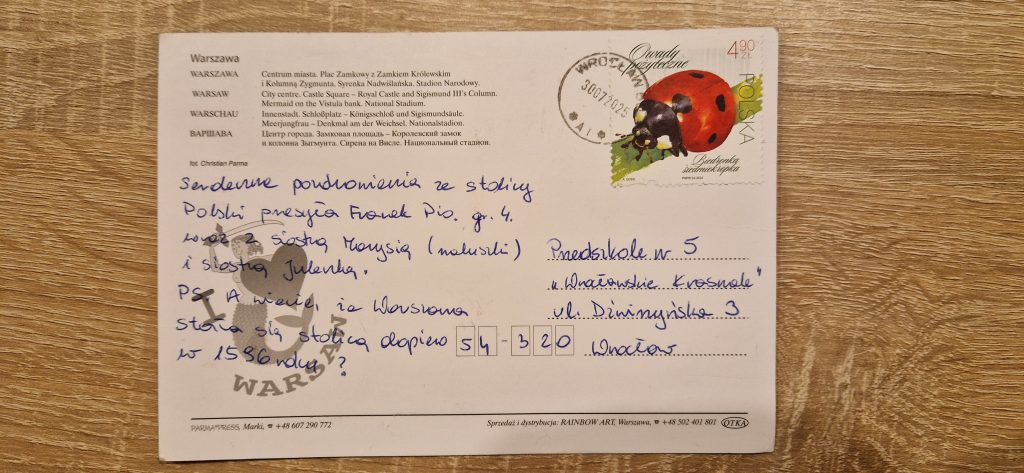 Warszawa
WARSZAWA Centrum miasta. Plac Zamkowy z Zamkiem Królewskim
i Kolumną Zygmunta. Syrenka Nadwiślańska. Stadion Narodowy.
WARSAW City centre. Castle Square – Royal Castle and Sigismund III's Column.
Mermaid on the Vistula bank. National Stadium.
WARSCHAU Innenstadt. Schloßplatz – Königsschloß und Sigismundsäule.
Meerjungfrau – Denkmal am der Weichsel. Nationalstadion.
ВАРШАВА Центр города. Замковая площадь – Королевский замок
и колонна Зыгмунта. Сирена на Висле. Национальный стадион.
fot. Christian Parma
Serdeczne pozdrowienia ze stolicy
Polski przesyła Franek Pio. gr. 4.
wraz z siostrą Marysią (maluszki)
i siostrą Julenką.
PS. A wiecie, że Warszawa
stała się stolicą dopiero
w 1596 roku?
I
WARSAW
WROCŁAW
30072025
* A1 *
Owady
pożyteczne
4,90 ZŁ
POLSKA
Biedronka
siedmiokropka
Przedszkole nr 5
"Wrocławskie Krasnale"
ul. Dźwirzyńska 3
54-320 Wrocław
PARMA PRESS, Marki, ☎ +48 607 290 772
Sprzedaż i dystrybucja: RAINBOW ART, Warszawa, ☎ +48 502 401 801 OTKA